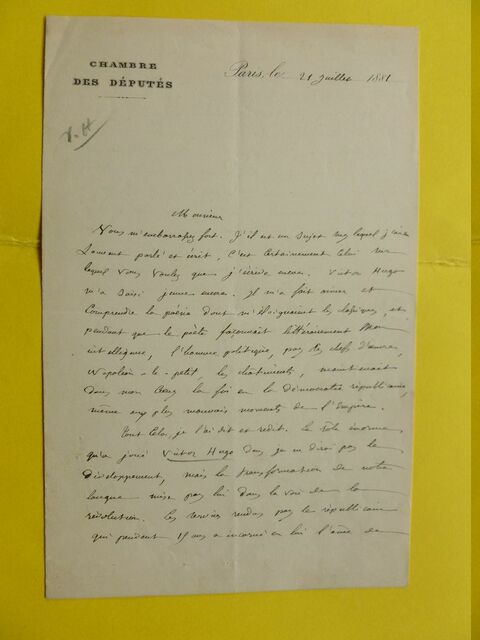 CHAMBRE
DES DÉPUTÉS
Paris, le 21 Juillet 1881
V. H
Monsieur
Vous m'embarrassez fort. S'il est un sujet sur lequel j'aie
souvent parlé et écrit, c'est certainement celui sur
lequel vous voulez que j'écrive encore. Victor Hugo
m'a saisi jeune encore. Il m'a fait aimer et
comprendre la poésie dont m'éloignaient les classiques, et
pendant que le poète façonnait littérairement mon
intelligence, l'homme politique, par les chefs d'œuvre,
Napoléon-le-petit, les châtiments, maintenait
dans mon cœur la foi en la démocratie républicaine,
même aux plus mauvais moments de l'Empire.
Tout cela, je l'ai dit et redit. Le rôle énorme
qu'a joué Victor Hugo dans je ne dirai pas le
développement, mais la transformation de notre
langue mise par lui dans la voie de la
révolution. Les services rendus par le républicain
qui pendant 19 ans a incarné en lui l'âme de